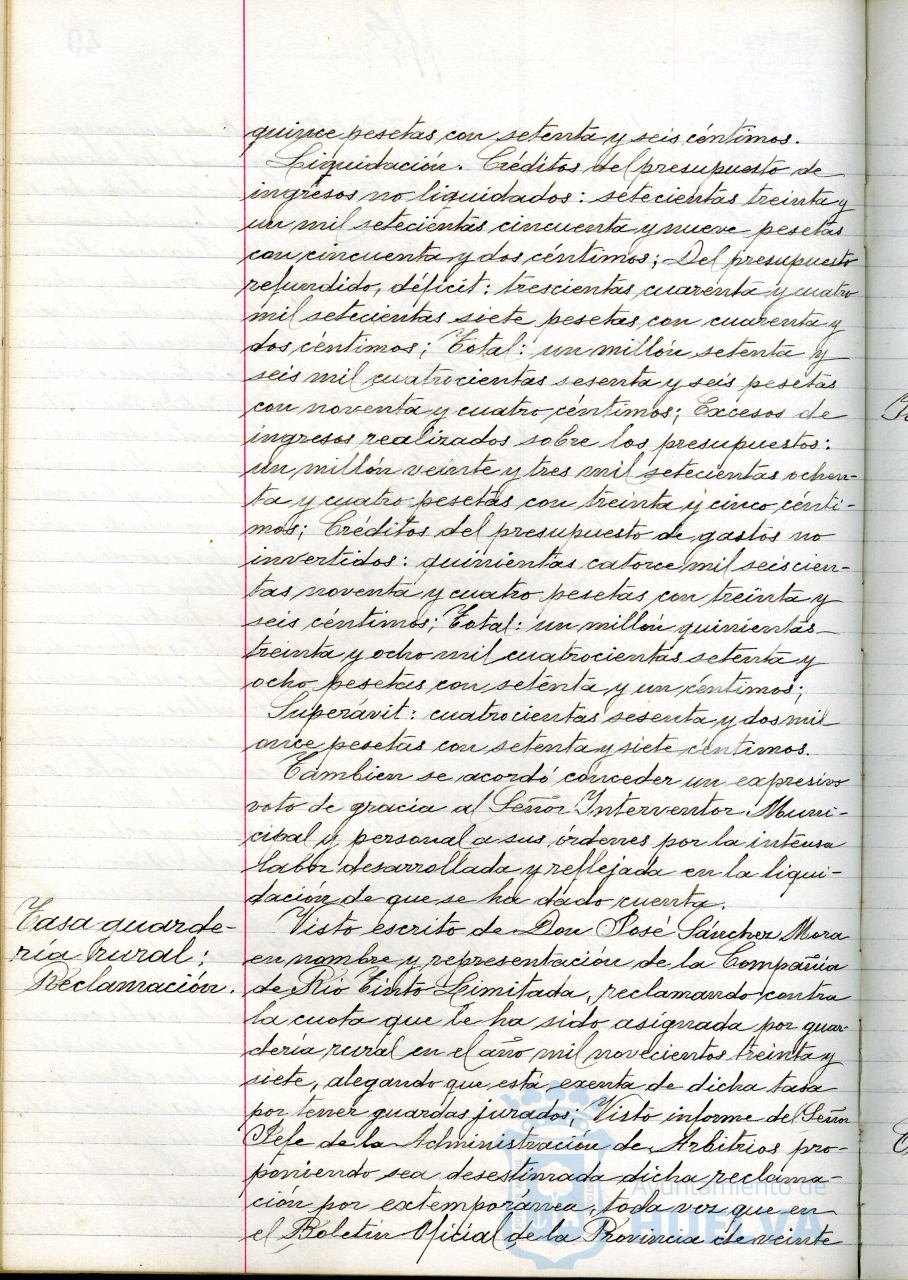 quince pesetas con setenta y seis céntimos.
Liquidación. Créditos del presupuesto de
ingresos no liquidados: setecientas treinta y
un mil setecientas cincuenta y nueve pesetas
con cincuenta y dos céntimos; Del presupuesto
refundido, déficit: trescientas cuarenta y cuatro
mil setecientas siete pesetas con cuarenta y
dos céntimos; Total: un millón setenta y
seis mil cuatrocientas sesenta y seis pesetas
con noventa y cuatro céntimos; Excesos de
ingresos realizados sobre los presupuestos:
un millón veinte y tres mil setecientas ochen-
ta y cuatro pesetas con treinta y cinco cénti-
mos; Créditos del presupuesto de gastos no
invertidos: quinientas catorce mil seiscien-
tas noventa y cuatro pesetas con treinta y
seis céntimos; Total: un millón quinientas
treinta y ocho mil cuatrocientas setenta y
ocho pesetas con setenta y un céntimos;
Superávit: cuatrocientas sesenta y dos mil
once pesetas con setenta y siete céntimos.
Tambien se acordó conceder un expresivo
voto de gracia al Señor Interventor Muni-
cipal y personal a sus órdenes por la intensa
labor desarrollada y reflejada en la liqui-
dación de que se ha dado cuenta.
Tasa guarde-
ría rural:
Reclamación.
Visto escrito de Don José Sánchez Mora
en nombre y representación de la Compañía
de Rio Tinto Limitada, reclamando contra
la cuota que le ha sido asignada por guar-
dería rural en el año mil novecientos treinta y
siete, alegando que está exenta de dicha tasa
por tener guardas jurados; Visto informe del Señor
Jefe de la Administración de Arbitrios pro-
poniendo sea desestimada dicha reclama-
ción por extemporánea, toda vez que en
el Boletín Oficial de la Provincia de veinte
Ayuntamiento de
HUELVA